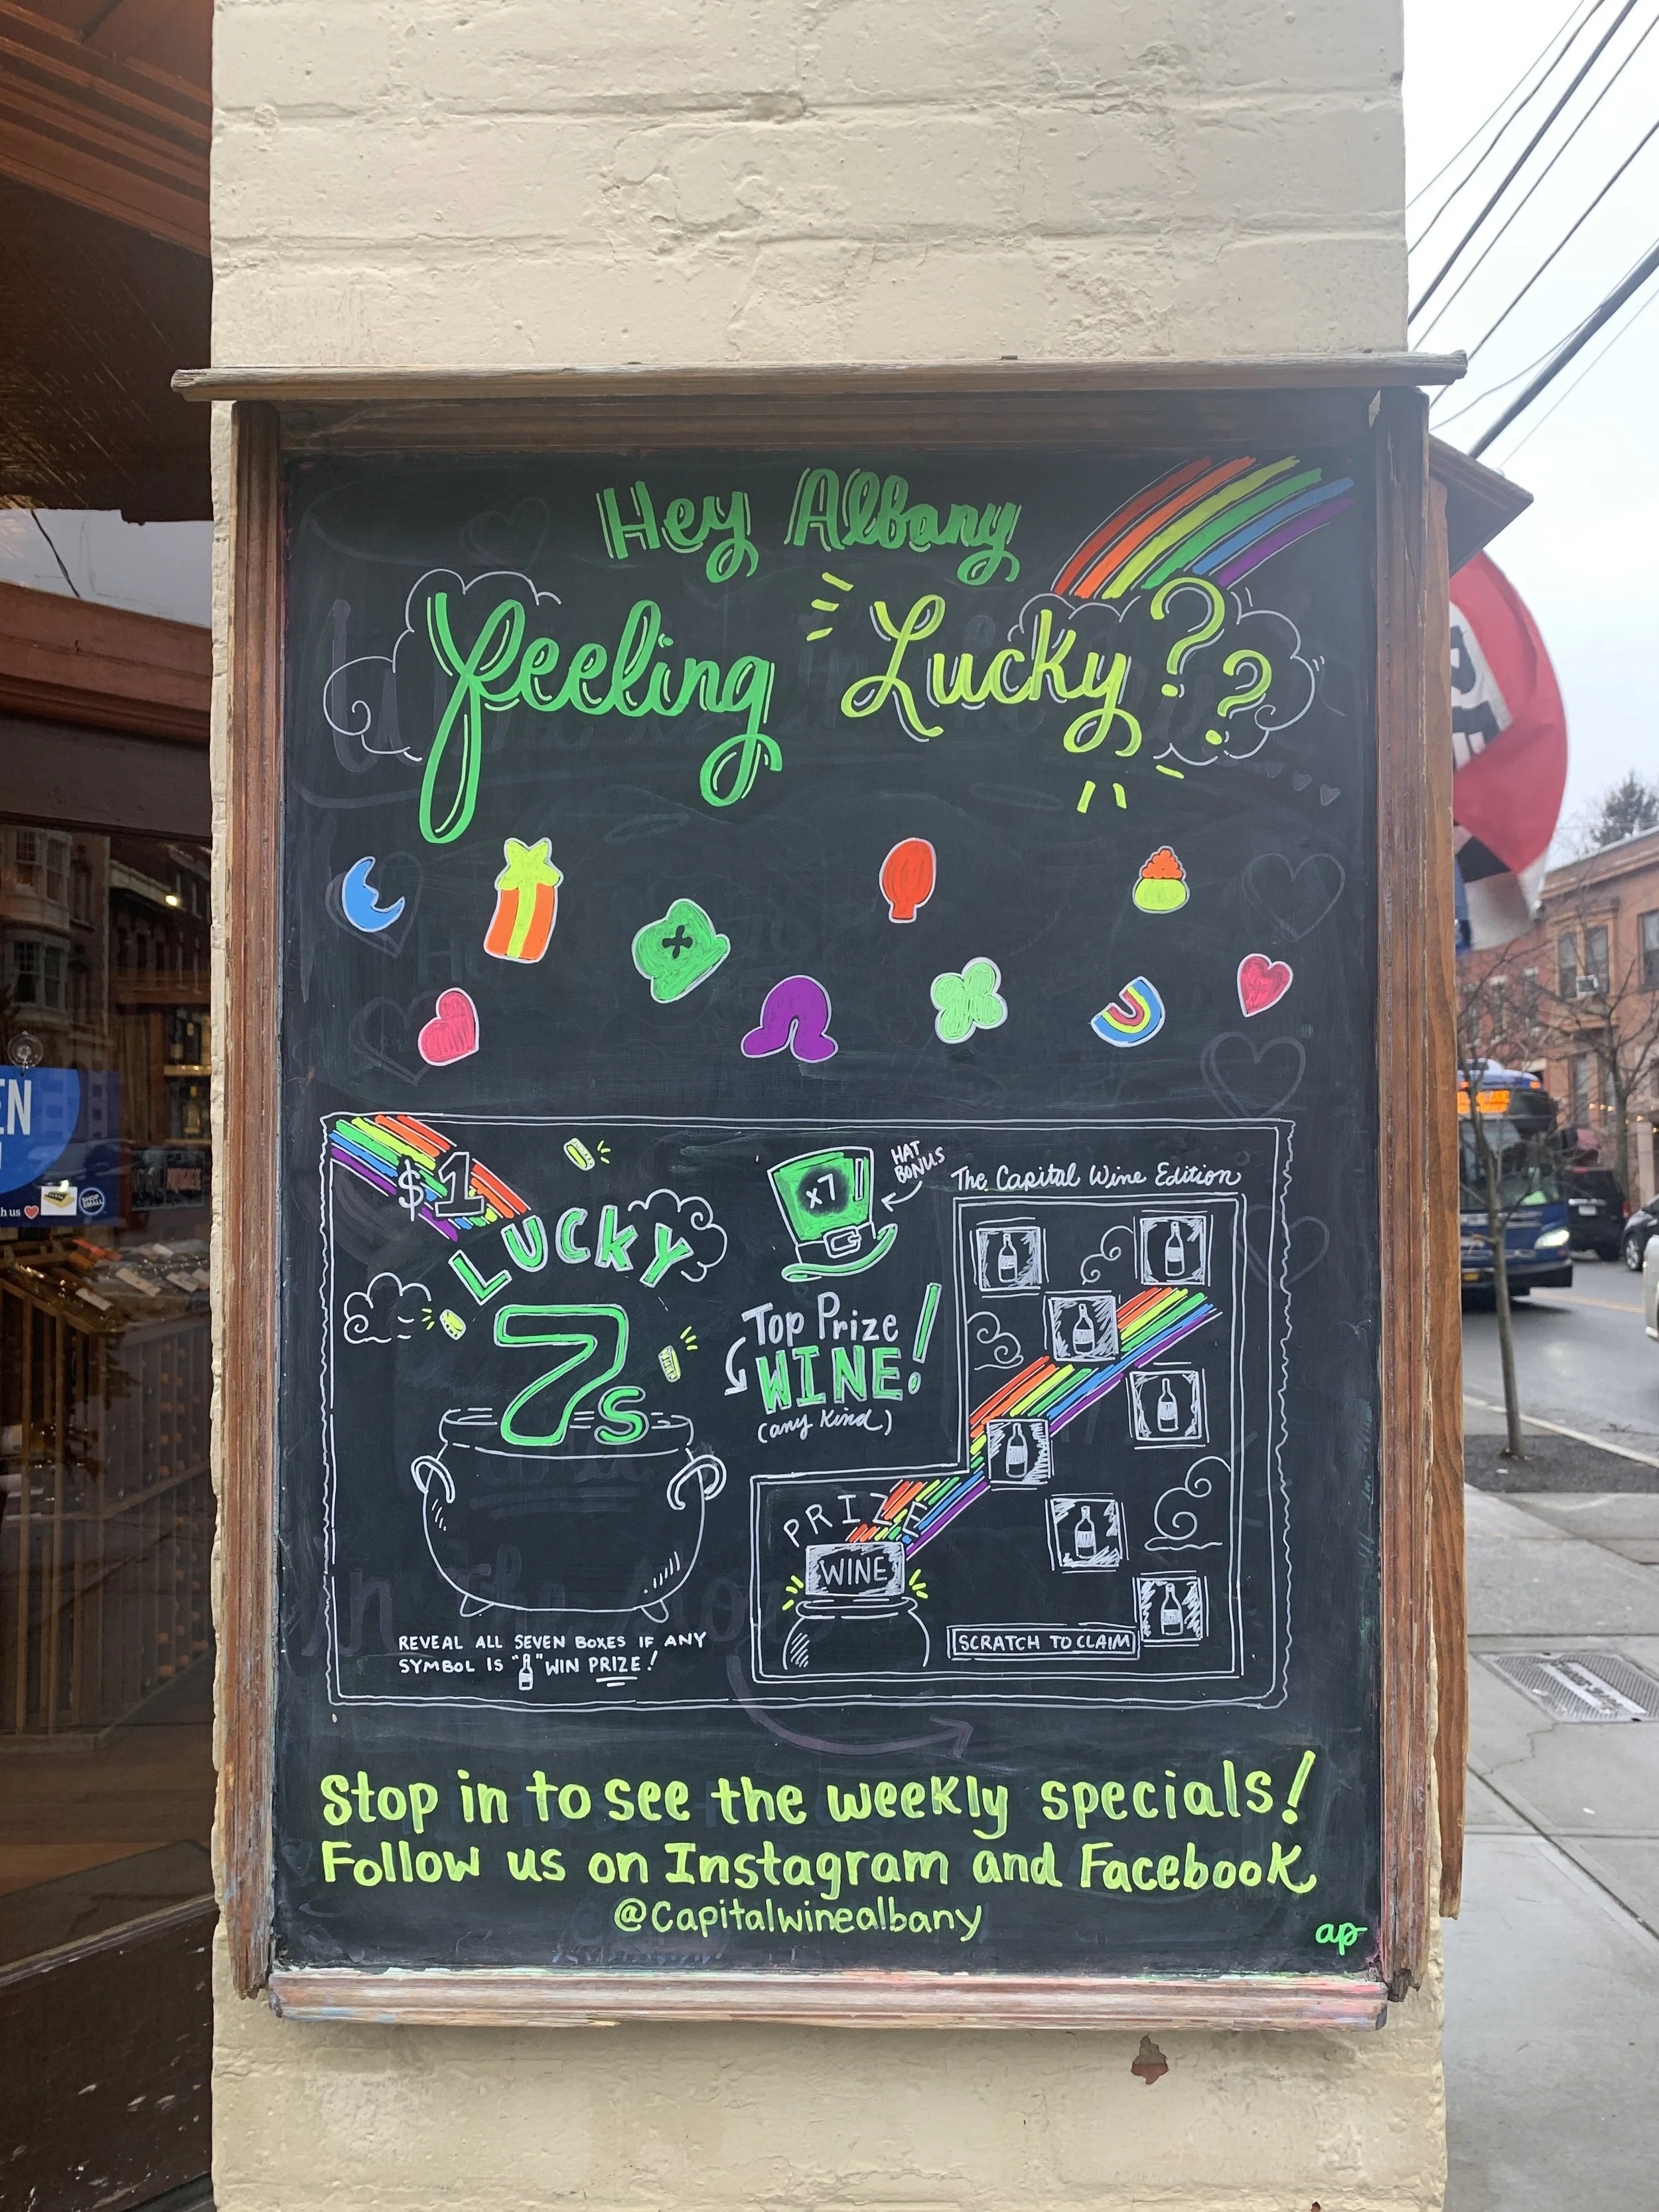 Hey Albany
Feeling Lucky??
$1
LUCKY
7s
x7
HAT
BONUS
The Capital Wine Edition
Top Prize
WINE!
(any kind)
PRIZE
WINE
SCRATCH TO CLAIM
REVEAL ALL SEVEN BOXES IF ANY
SYMBOL IS " " WIN PRIZE!
Stop in to see the weekly specials!
Follow us on Instagram and Facebook
@Capitalwinealbany
ap
EN
th us
SHOP
SMALL